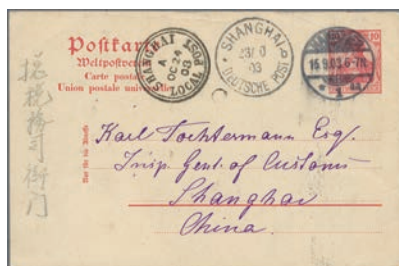 Postkarte
Weltpostverein
Carte postale
Union postale universelle
SHANGHAI LOCAL POST
A
OC 24
03
SHANGHAI
DEUTSCHE POST
03
15.9.03.6-7N.
10
Karl Tochtermann Esq.
Insp. Genl. of Customs
Shanghai
China.
税務司衙门